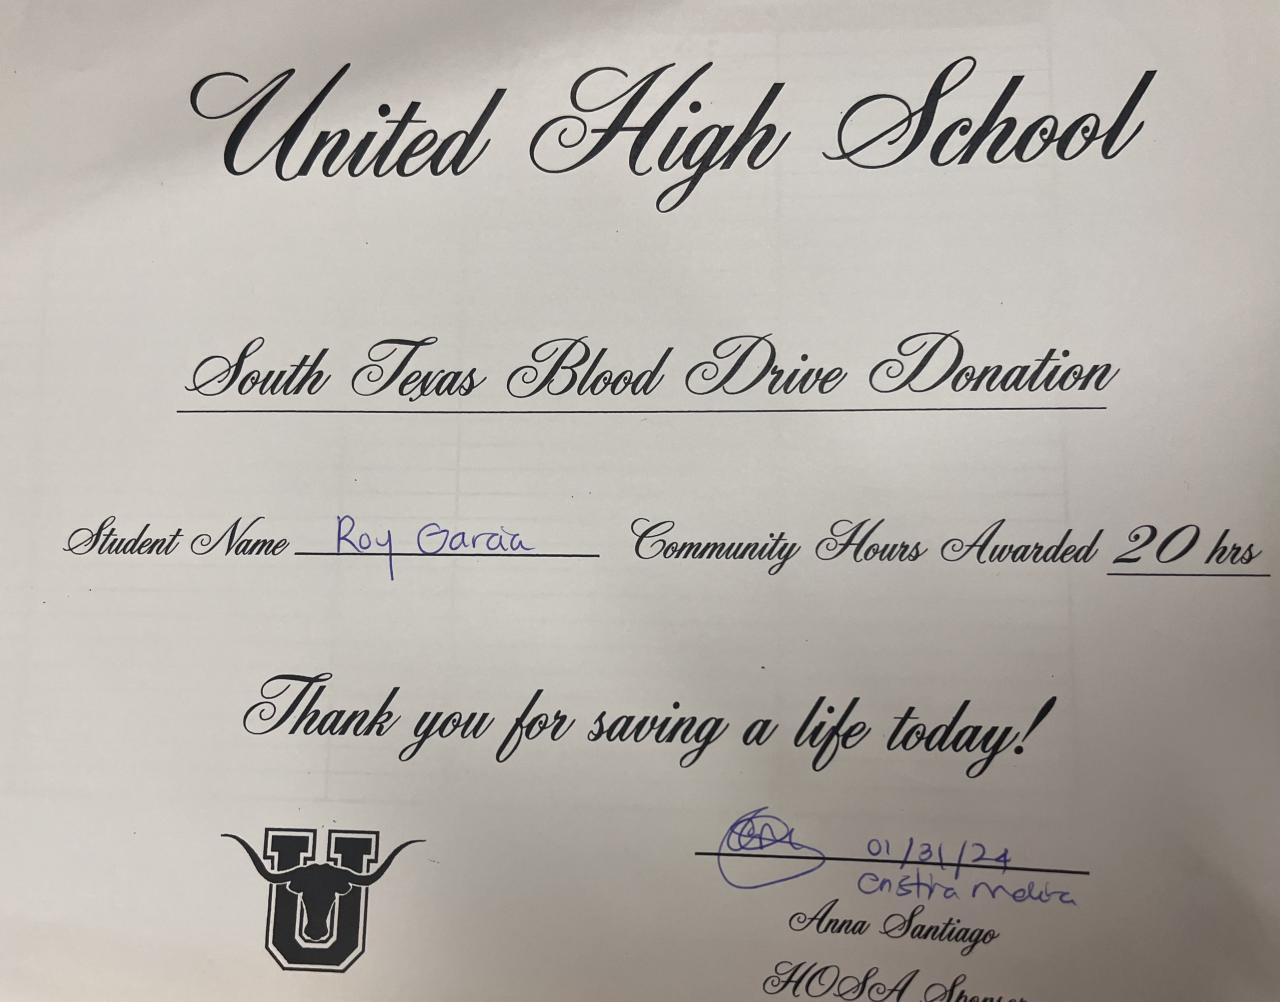 United High School
South Texas Blood Drive Donation
Student Name Roy Garcia Community Hours Awarded 20 hrs
Thank you for saving a life today!
01/31/24
Anna Santiago
HOSA Sponsor
U